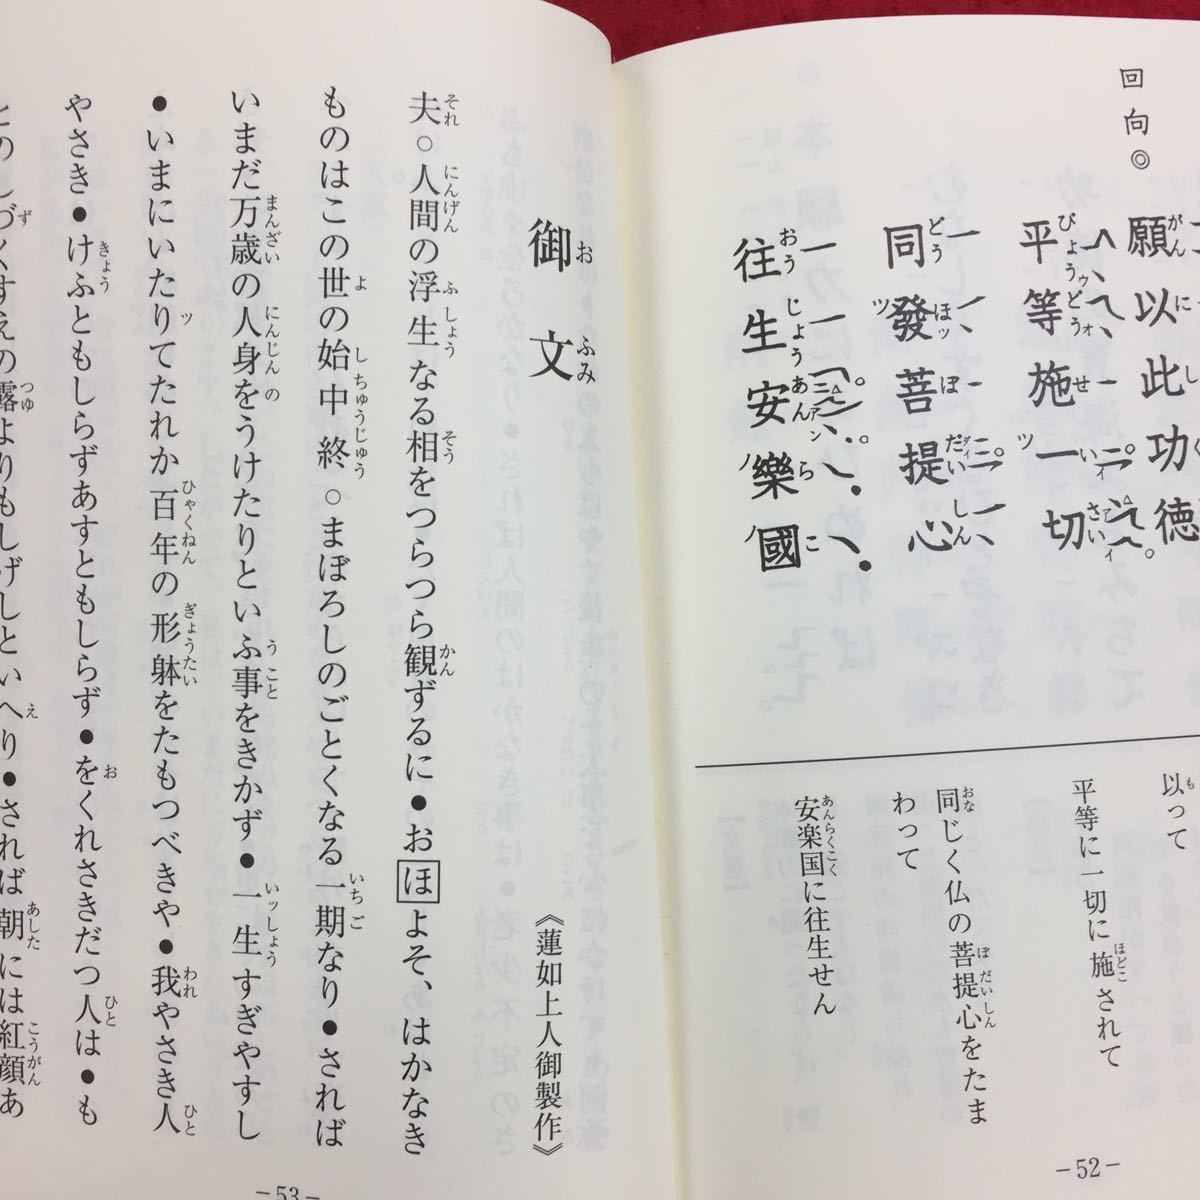 回向◎
願以此功徳
平等施一切
同發菩提心
往生安樂國
以って
平等に一切に施されて
同じく仏の菩提心をたま
わって
安楽国に往生せん
−52−
御文
《蓮如上人御製作》
夫○人間の浮生なる相をつらつら観ずるに●おほよそ、はかなき
ものはこの世の始中終○まぼろしのごとくなる一期なり●されば
いまだ万歳の人身をうけたりといふ事をきかず●一生すぎやすし
●いまにいたりてたれか百年の形躰をたもつべきや●我やさき人
やさき●けふともしらずあすともしらず●をくれさきだつ人は●も
づくすえの露よりもしげしといへり●されば朝には紅顔あ
−53−